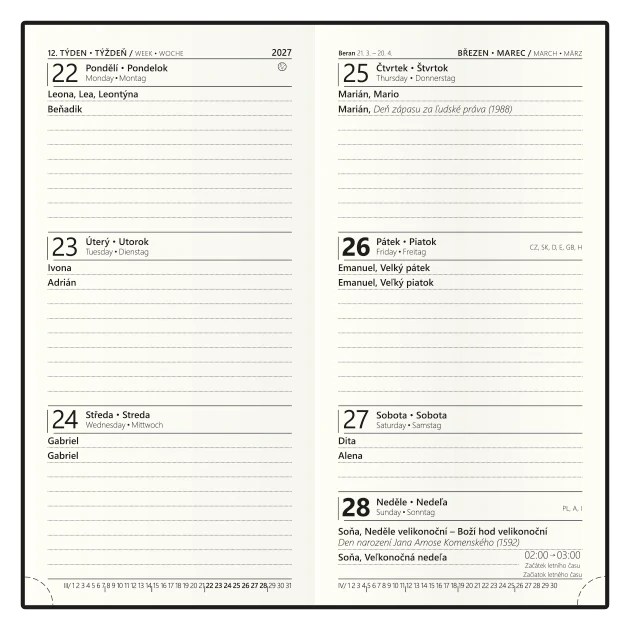 12. TÝDEN • TÝŽDEŇ / WEEK • WOCHE 2027
22 Pondělí • Pondelok
Monday • Montag
Leona, Lea, Leontýna
Beňadik
23 Úterý • Utorok
Tuesday • Dienstag
Ivona
Adrián
24 Středa • Streda
Wednesday • Mittwoch
Gabriel
Gabriel
III/ 1 2 3 4 5 6 7 8 9 10 11 12 13 14 15 16 17 18 19 20 21 22 23 24 25 26 27 28 29 30 31
Beran 21. 3. – 20. 4. BŘEZEN • MAREC / MARCH • MÄRZ
25 Čtvrtek • Štvrtok
Thursday • Donnerstag
Marián, Mario
Marián, Deň zápasu za ľudské práva (1988)
26 Pátek • Piatok
Friday • Freitag
CZ, SK, D, E, GB, H
Emanuel, Velký pátek
Emanuel, Veľký piatok
27 Sobota • Sobota
Saturday • Samstag
Dita
Alena
28 Neděle • Nedeľa
Sunday • Sonntag
PL, A, I
Soňa, Neděle velikonoční – Boží hod velikonoční
Den narození Jana Amose Komenského (1592)
Soňa, Veľkonočná nedeľa
02:00→03:00
Začátek letního času
Začiatok letného času
IV/ 1 2 3 4 5 6 7 8 9 10 11 12 13 14 15 16 17 18 19 20 21 22 23 24 25 26 27 28 29 30